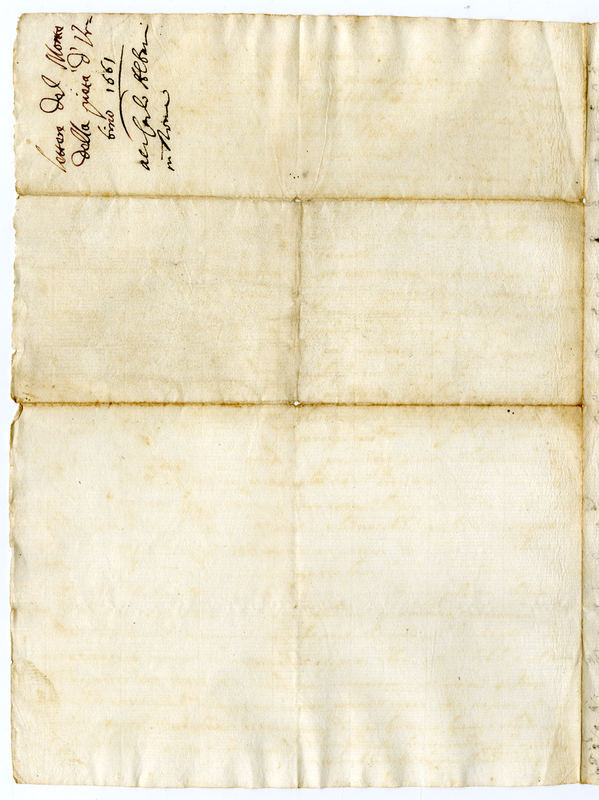 lettere del Monte
della pietà d'Ur=
bino 1661
al Sig.r Carlo Albani
in Roma